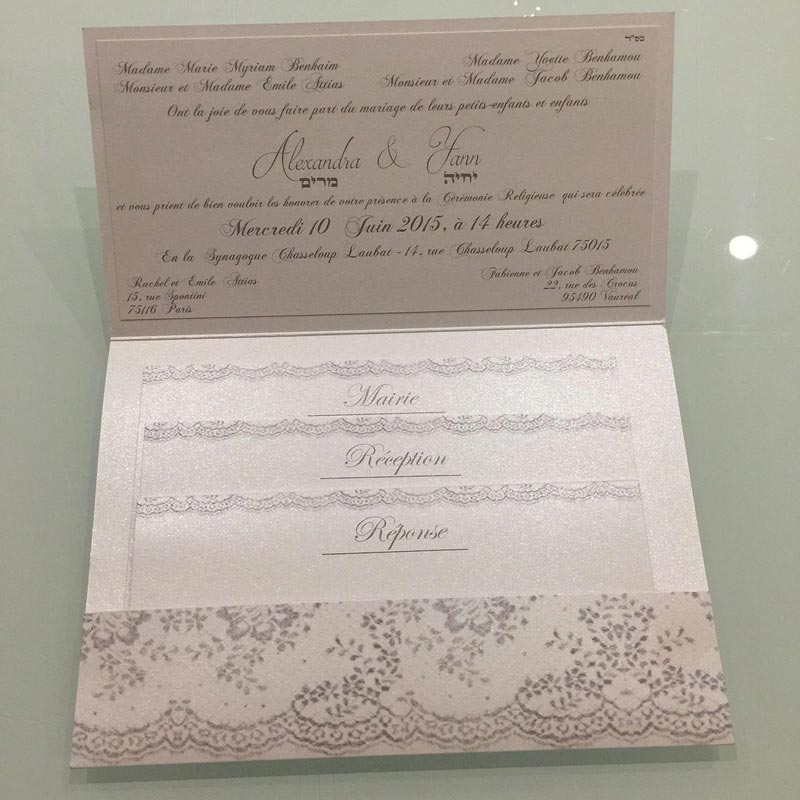 בס"ד
Madame Marie Myriam Benhaim
Monsieur et Madame Emile Attias
Madame Yvette Benhamou
Monsieur et Madame Jacob Benhamou
Ont la joie de vous faire part du mariage de leurs petits-enfants et enfants
Alexandra & Yann
מרים יחיה
et vous prient de bien vouloir les honorer de votre présence à la Cérémonie Religieuse qui sera célébrée
Mercredi 10 Juin 2015, à 14 heures
En la Synagogue Chasseloup Laubat - 14, rue Chasseloup Laubat 75015
Rachel et Emile Attias
15, rue Spontini
75116 Paris
Fabienne et Jacob Benhamou
22, rue des Crocus
95490 Vauréal
Mairie
Réception
Réponse